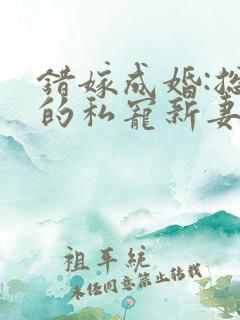 錯嫁成婚:總
的私寵新妻
祖平統
未经同意禁止转载